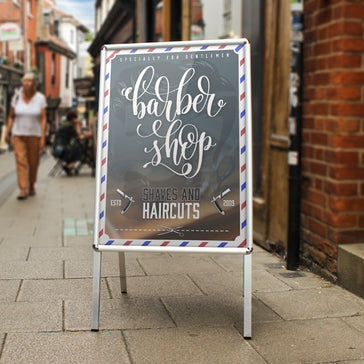 SPECIALLY FOR GENTLEMEN
barber
shop
SHAVES AND
ESTD HAIRCUTS 2009